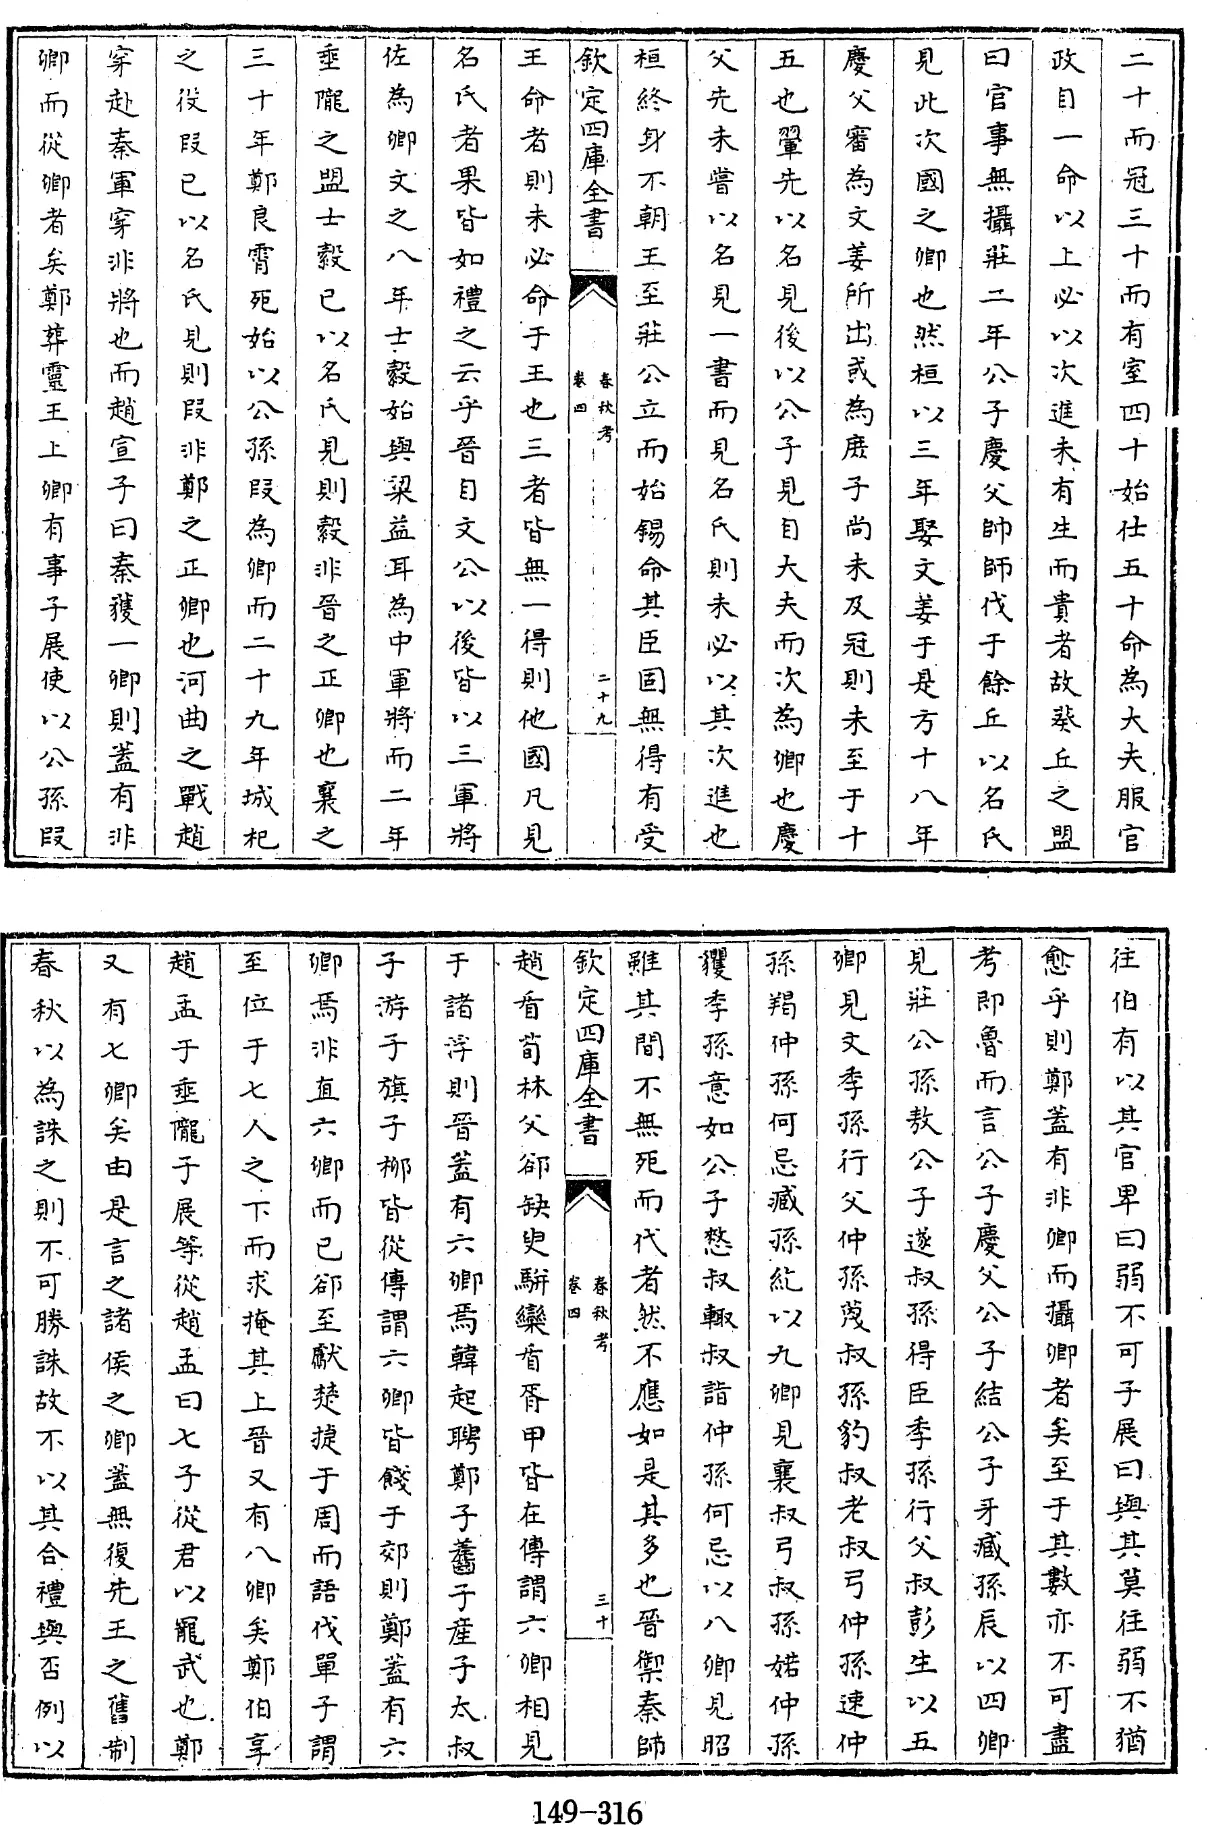 二十而冠三十而有室四十始仕五十命為大夫服官
政自一命以上必以次進未有生而貴者故葵丘之盟
曰官事無攝莊二年公子慶父帥師伐于餘丘以名氏
見此次國之卿也然桓以三年娶文姜于是方十八年
慶父審為文姜所出或為庶子尚未及冠則未至于十
五也翬先以名見後以公子見自大夫而次為卿也慶
父先未嘗以名見一書而見名氏則未必以其次進也
桓終身不朝王至莊公立而始錫命其臣固無得有受
欽定四庫全書
春秋考
卷四
二十九
王命者則未必命于王也三者皆無一得則他國凡見
名氏者果皆如禮之云乎晉自文公以後皆以三軍將
佐為卿文之八年士縠始與梁益耳為中軍將而二年
垂隴之盟士縠已以名氏見則縠非晉之正卿也襄之
三十年鄭良霄死始以公孫段為卿而二十九年城杞
之役段已以名氏見則段非鄭之正卿也河曲之戰趙
穿赴秦軍穿非將也而趙宣子曰秦獲一卿則蓋有非
卿而從卿者矣鄭葬靈王上卿有事子展使以公孫段
往伯有以其官卑曰弱不可子展曰與其莫往弱不猶
愈乎則鄭蓋有非卿而攝卿者矣至于其數亦不可盡
考即魯而言公子慶父公子結公子牙臧孫辰以四卿
見莊公孫敖公子遂叔孫得臣季孫行父叔彭生以五
卿見文季孫行父仲孫蔑叔孫豹叔老叔弓仲孫速仲
孫羯仲孫何忌臧孫紇以九卿見襄叔弓叔孫婼仲孫
貜季孫意如公子憗叔輒叔詣仲孫何忌以八卿見昭
雖其間不無死而代者然不應如是其多也晉禦秦師
欽定四庫全書
春秋考
卷四
三十
趙盾荀林父郤缺臾駢欒盾胥甲皆在傳謂六卿相見
于諸浮則晉蓋有六卿焉韓起聘鄭子齹子產子太叔
子游子旗子栁皆從傳謂六卿皆餞于郊則鄭蓋有六
卿焉非直六卿而已郤至獻楚捷于周而語伐單子謂
至位于七人之下而求掩其上晉又有八卿矣鄭伯享
趙孟于垂隴子展等從趙孟曰七子從君以寵武也鄭
又有七卿矣由是言之諸侯之卿蓋無復先王之舊制
春秋以為誅之則不可勝誅故不以其合禮與否例以
149-316